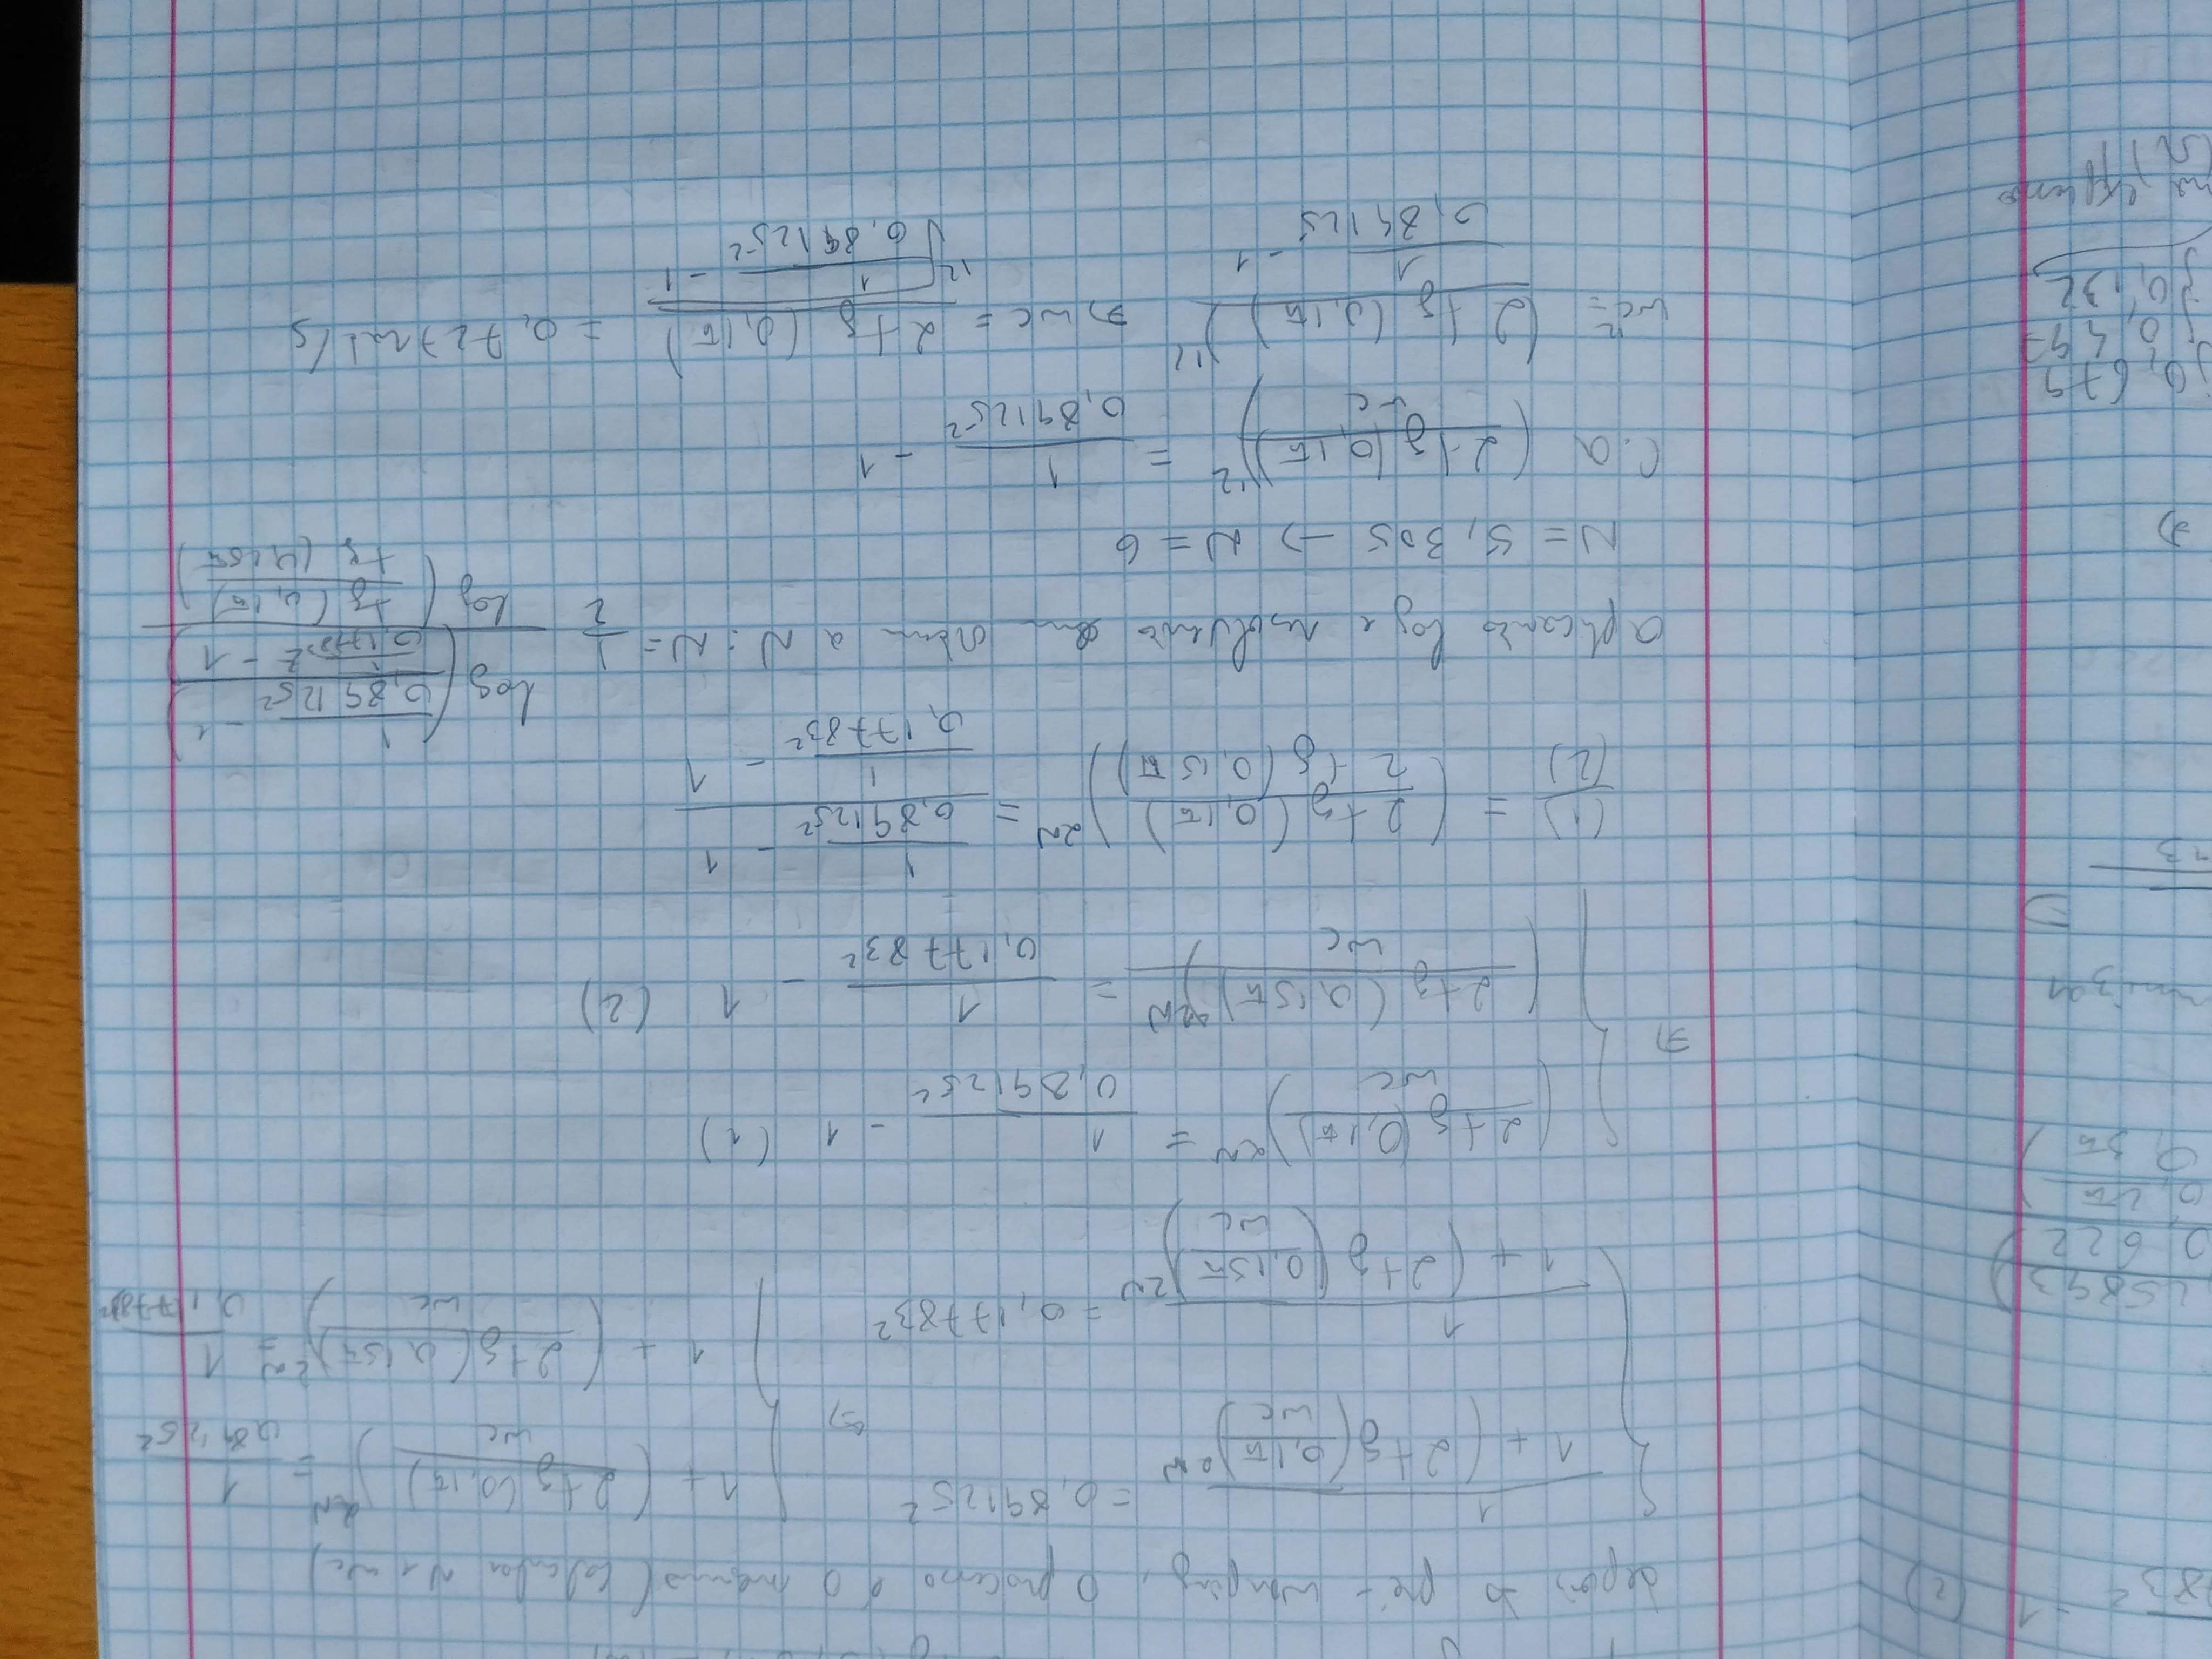 depois do pré-warping, o processo é o mesmo (calcular N e wc)
{ 1 / (1 + (2tg(0,1π / wc))^2N) = 0,89125² ⇔ { 1 + (2tg(0,1π) / wc)^2N = 1 / 0,89125²
{ 1 / (1 + (2tg(0,15π / wc))^2N) = 0,17783² { 1 + (2tg(0,15π) / wc)^2N = 1 / 0,17783²
⇔ { (2tg(0,1π) / wc)^2N = 1 / 0,89125² - 1 (1)
{ (2tg(0,15π) / wc)^2N = 1 / 0,17783² - 1 (2)
(1) / (2) = (2tg(0,1π) / 2tg(0,15π))^2N = (1 / 0,89125² - 1) / (1 / 0,17783² - 1)
aplicando log e resolvendo em ordem a N: N = 1/2 log((1 / 0,89125² - 1) / (1 / 0,17783² - 1)) / log(tg(0,1π) / tg(0,15π))
N = 5,305 → N = 6
C.A (2tg(0,1π) / wc)^12 = 1 / 0,89125² - 1
wc^12 = (2tg(0,1π))^12 / (1 / 0,89125 - 1) ⇔ wc = 2tg(0,1π) / ^12√(1 / 0,89125² - 1) = 0,727 rad/s
83² - 1 (2)
0,2π
0,3π
j0,679
0,497
j0,132